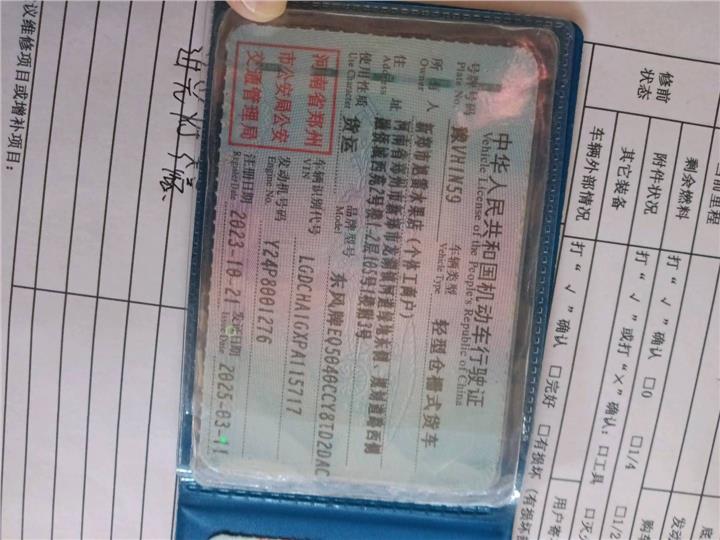 中华人民共和国机动车行驶证
Vehicle License of the People's Republic of China
号牌号码 豫VH1N59 车辆类型 轻型仓栅式货车
Plate No. Vehicle Type
所有人 新郑市 水果店（个体工商户）
Owner
住址 河南省郑州市新郑市龙湖镇
Address
西苑2号楼1-2层105号1楼附3号
使用性质 货运 品牌型号 东风牌EQ5040CCY8TD2DAC
Use Character Model
河南省郑州
市公安局公安
交通管理局
车辆识别代号 LGDCHA1GXPA115717
VIN
发动机号码 Y24P8001276
Engine No.
注册日期 2023-10-21 发证日期 2025-03-11
Register Date Issue Date
修前
状态
剩余燃料
附件状况
其它装备
车辆外部情况
打“√”确认 □0 □1/4 □1/2
打“√”或打“×”确认：□工具
打“√”确认 □完好 □有损坏
议维修项目或增补项目：